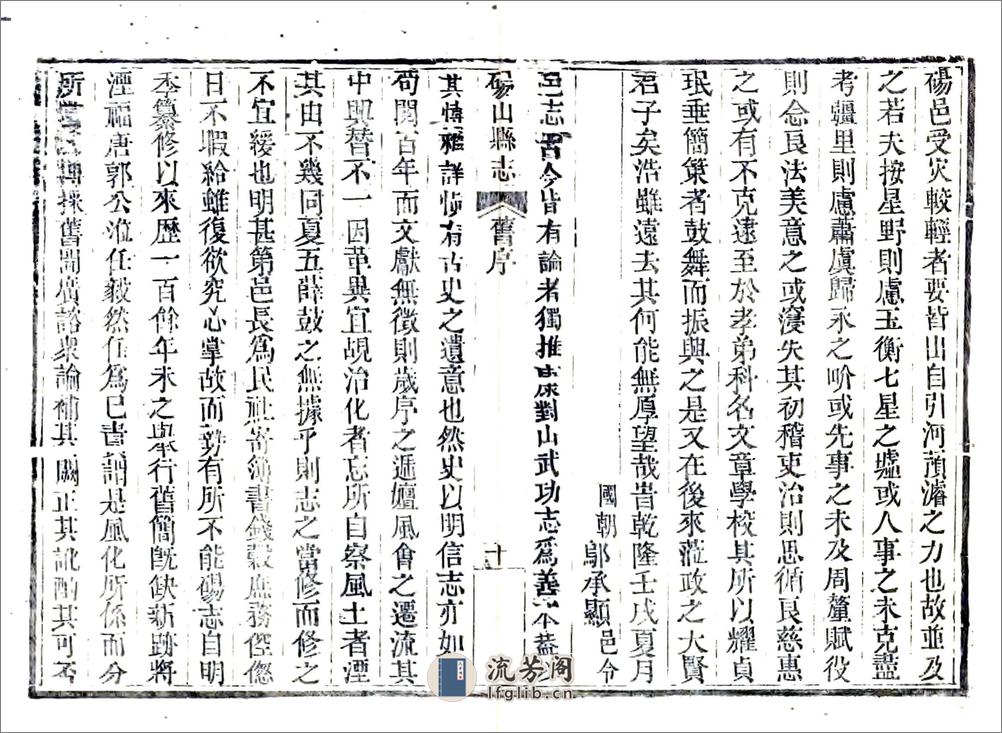 碭邑受災較輕者要皆出自引河預濬之力也故並及
之若夫按星野則慮玉衡七星之墟或人事之未克盡
考疆里則慮蕭虞歸永之吩或先事之未及周釐賦役
則念良法美意之或寖失其初稽吏治則思循良慈惠
之或有不克逮至於孝弟科名文章學校其所以耀貞
珉垂簡策者鼓舞而振興之是又在後來蒞政之大賢
君子矣浩雖遠去其何能無厚望哉旹乾隆壬戌夏月
國朝鄔承顯邑令
邑志古今皆有論者獨推康對山武功志為善本葢
碭山縣志 舊序 十
其博雅詳慎有古史之遺意也然史以明信志亦如
苟閱百年而文獻無徵則歲序之遞嬗風會之遷流其
中興替不一因革異宜覘治化者忘所自察風土者湮
其由不幾同夏五薛鼓之無據乎則志之當修而修之
不宜緩也明甚第邑長爲民社寄簿書錢穀庶務倥偬
日不暇給雖復欲究心掌故而勢有所不能碭志自明
季纂修以來歷一百餘年未之舉行舊簡既缺新跡將
湮福唐郭公涖任毅然任爲已責謂是風化所係而分
所 採舊聞廣諮衆論補其闕正其訛酌其可否
流芳阁
lfglib.cn